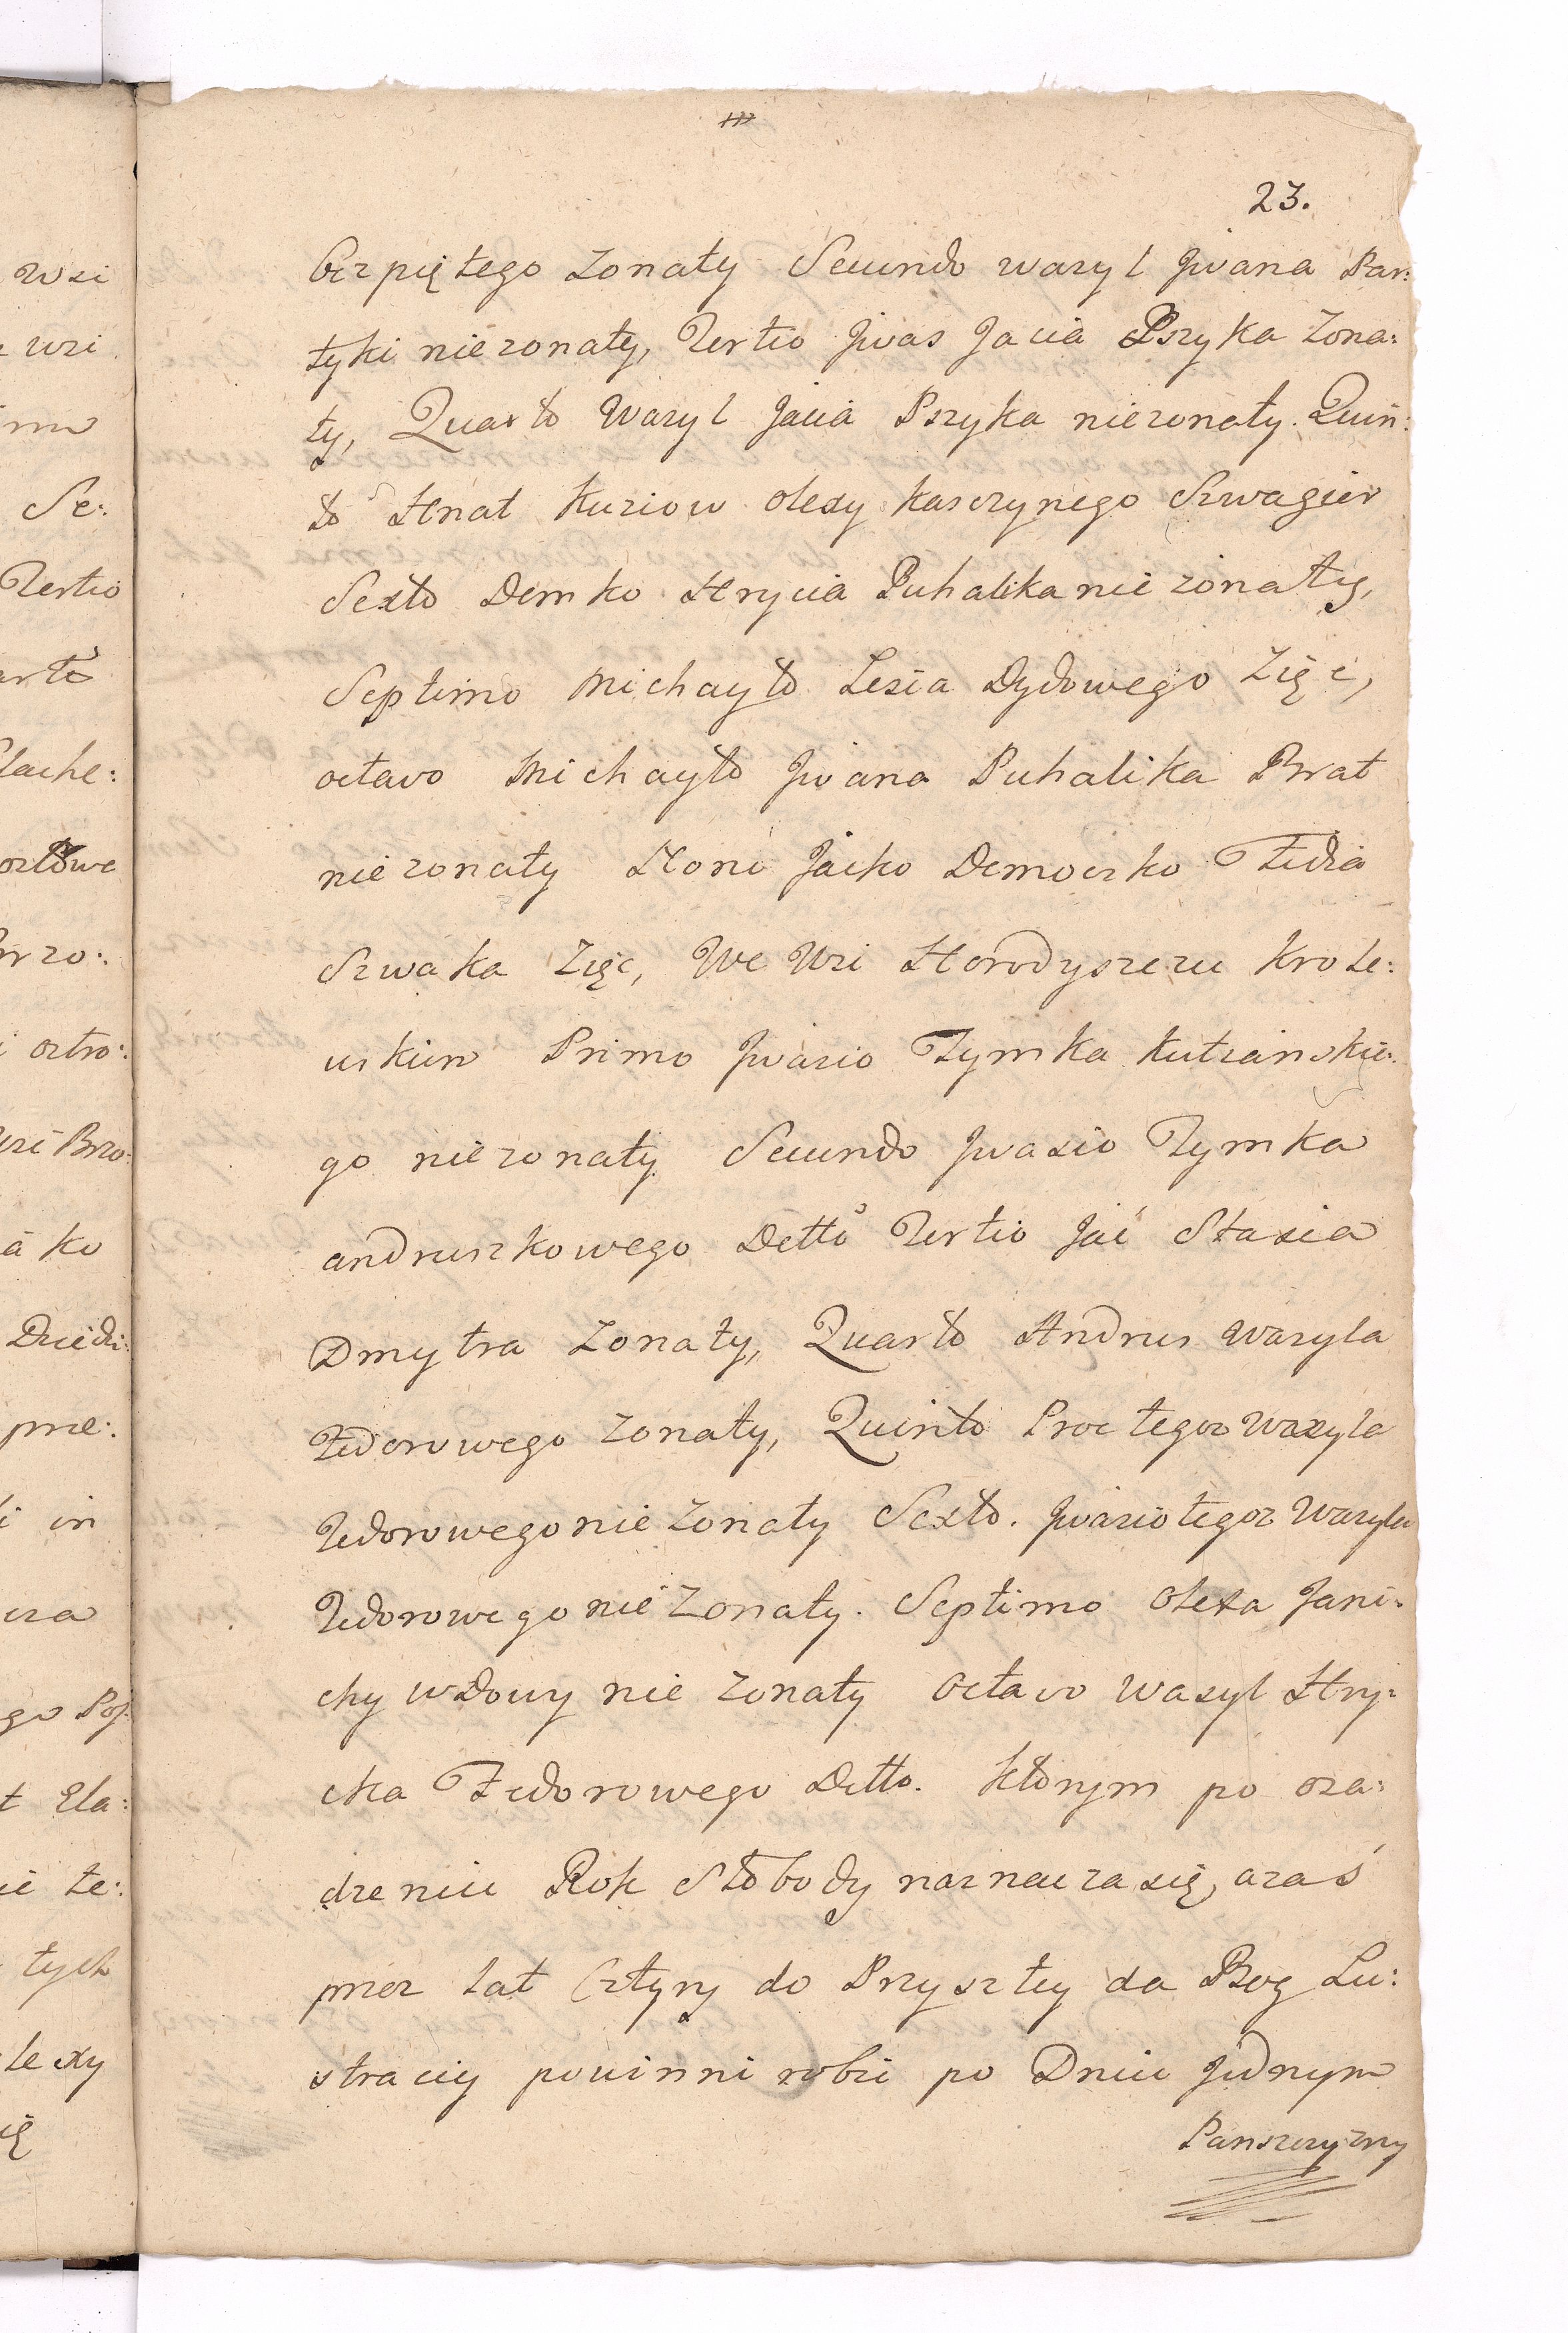 23.
bezpiętego zonaty Secundo wasyl Jwana Par:
tyki niezonaty, Tertio Jwas Jacia Pszyka zona:
ty, Quarto Wasyl Jacia Pszyka niezonaty. Quin:
to Hnat Kuziow olexy kasczynego Szwagier
Sexto Demko Hrycia Puhalika nie zonaty,
Septimo Michayło Lesia Dydowego Zięc,
octavo Michayło Jwana Puhalika Brat
niezonaty Nono Jacko Democzko Fedia
Szwaka Zięc, We Wsi Horodyszczu Krole:
wskim Primo Jwasio Tymka Kutzanskie:
go niezonaty Secundo Jwasio Tymka
andruszkowego Detto Tertio Jać Stasia
Dmytra Zonaty, Quarto Andrus Wasyla
Fedorowego Zonaty, Quinto Proc tegoz Wasyla
Fedorowego nie Zonaty Sexto. Jwasio tegoz Wasyla
Fedorowego nie Zonaty. Septimo Olexa Jani:
chy wdowy nie Zonaty Octavo Wasyl Hry:
cka Fedorowego Detto. którym po osa:
dzeniu Rok Słobody naznacza się, a zaś
przez lat Cztyry do Przyszłey da Bog Lu:
stracyi powinni robic po Dniu Jednym
Panszczyzny